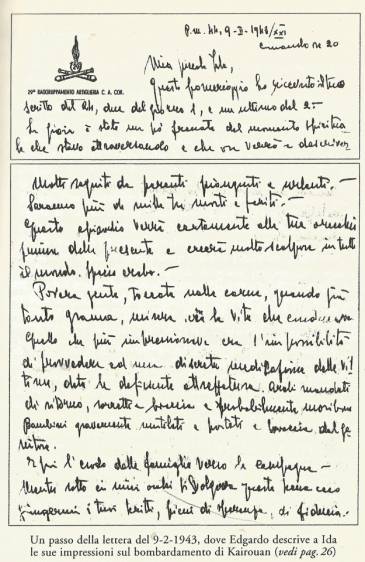 P.M. 44, 9-II-1943/XXI
29° RAGGRUPPAMENTO ARTIGLIERIA C. A. COR.
Mia piccola Ida,
Questo pomeriggio ho ricevuto il tuo
scritto del 24, due del giorno 1, e un ultimo del 2 -
La gioia è stata un pò frenata dal momento spiritua
le che stavo attraversando e che ora verrò a descriver
Molti seguiti da parenti piangenti e urlanti. -
Saranno più di mille tra morti e feriti. -
Questo episodio verrà certamente alle tue orecchie
prima della presente e creerà molto scalpore in tutto
il mondo. -
Povera gente, toccata nella carne, quando già
tanto grama, misera era la vita che conduceva
Quello che più impressionava era l'impossibilità
di provvedere ad una discreta medicazione delle vit
time, data la deficiente attrezzatura. Arabi mandati
di ritorno, sorretti a braccia e probabilmente moribon
Bambini gravemente mutilati e portati a braccia dal ge
nitore.
E poi l'esodo delle famiglie verso la campagna -
Mentre sotto i miei occhi si svolgeva questo
giungermi i tuoi scritti, pieni di speranza, di fiducia. -
Un passo della lettera del 9-2-1943, dove Edgardo descrive a Ida
le sue impressioni sul bombardamento di Kairouan (vedi pag. 26)